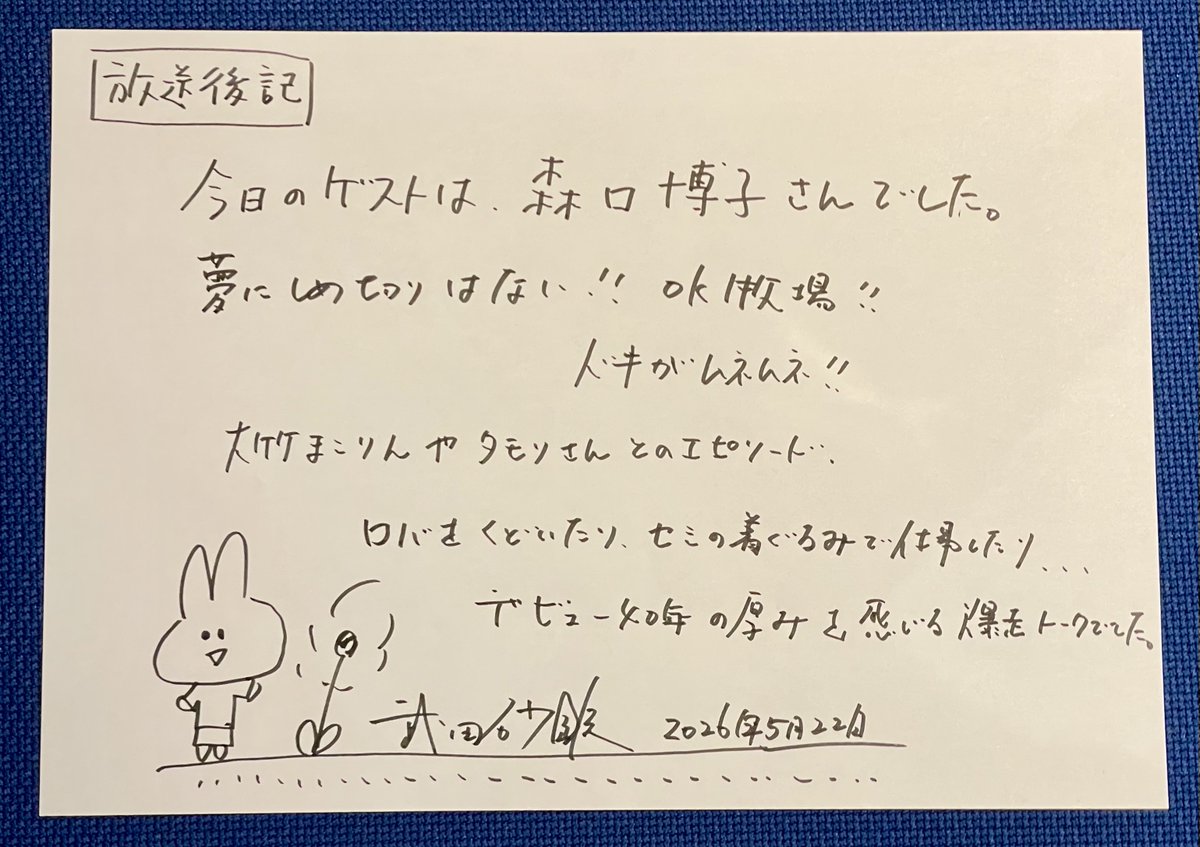 放送後記
今日のゲストは、森口博子さんでした。
夢にしめ切りはない!! OK牧場!!
ドキがムネムネ!!
大竹まことさんやタモリさんとのエピソード、
ロバをくどいたり、セミの着ぐるみで仕事したり...
デビュー40年の厚みを感じる爆走トークでした。
武田砂鉄 2026年5月22日